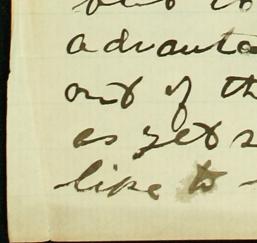 but
advanta
out of th
as yet s
like to